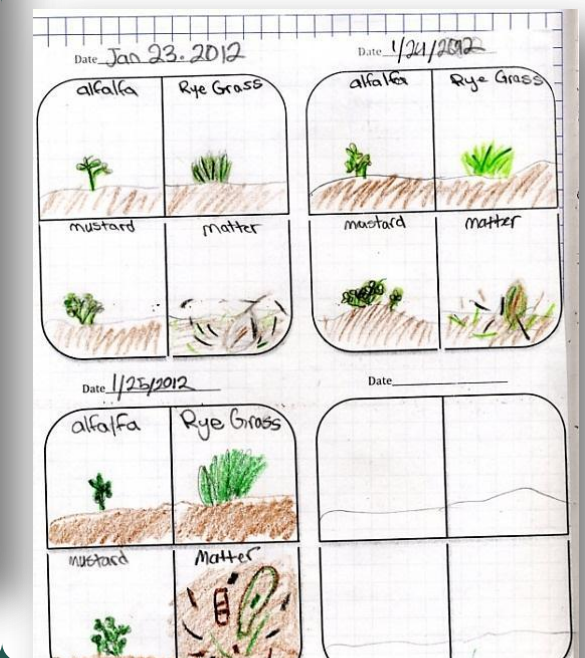 Date Jan 23. 2012
alfalfa Rye Grass
mustard matter
Date 1/24/2012
alfalfa Rye Grass
mustard matter
Date 1/25/2012
alfalfa Rye Grass
mustard Matter
Date